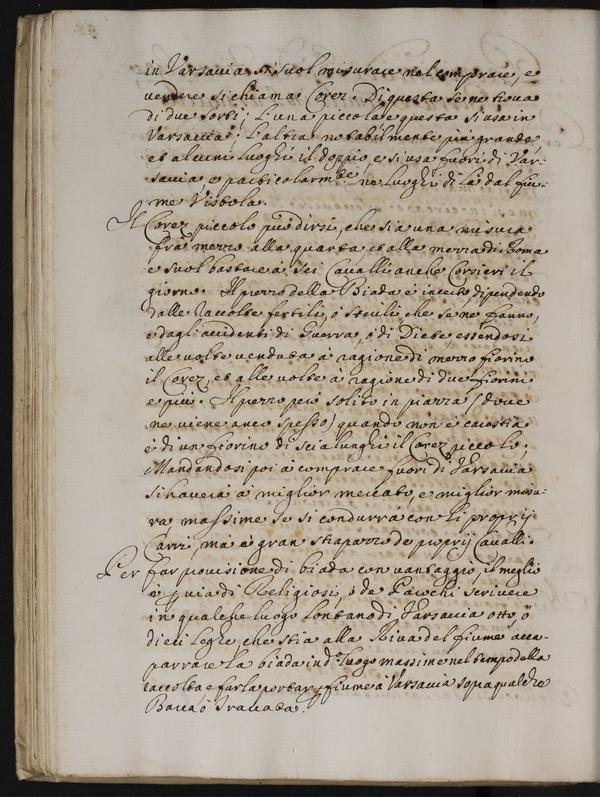 in Varsavia si suol misurare nel comprare, e
vendere si chiama Corez. Di questa se ne trova
di due sorti; L'una piccola e questa si usa in
Varsavia; L'altra notabilmente più grande,
et alcuni luoghi il doppio, e si usa fuori di Var-
savia, o particolarm.te ne luoghi di là dal fiu-
me Vistola.
Il Corez piccolo può dirsi, che sia una misura
frà mezzo alla quarta et alla mezza di Roma
e suol bastare à sei Cavalli anche Corsieri il
giorno. Il prezzo della Biada è incerto, dipendendo
dalle raccolte fertili, ò sterili, che se ne fanno,
e dagl'accidenti di Guerra, ò di Diete, essendosi
alle volte venduta à ragione di mezzo fiorino
il Corez, et alle volte à ragione di due fiorini
e più. Il prezzo però solito in piazza (dove
ne viene anco spesso) quando non è carestia
è di un fiorino di scialunghi il Corez piccolo;
Mandandosi poi à comprare fuori di Varsavia
si haverà à miglior mercato, e miglior misu-
ra massime se si condurrà con li proprij
Carri, mà à gran strapazzo de proprij Cavalli.
Per far provisione di biada con vantaggio, il meglio
è p via di Religiosi, ò de Parochi scrivere
in qualche luogo lontano di Varsavia otto, ò
dieci leghe, che stia alla Riva del fiume acca-
parrare la biada in d.o luogo massime nel tempo della
raccolta, e farla portar p fiume à Varsavia sopra qualche
Barca, ò Travata.